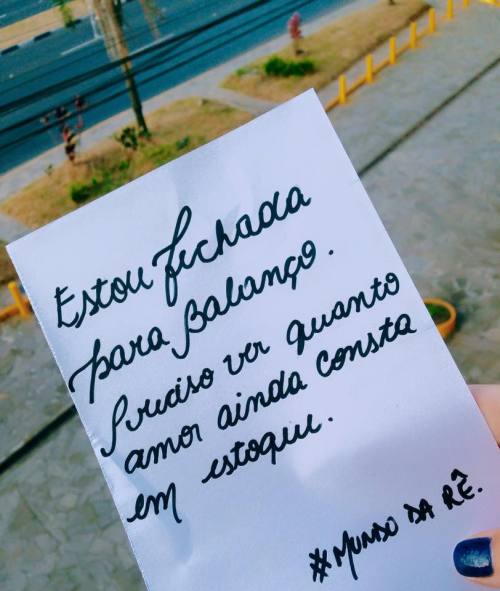 Estou fechada
para Balanço.
Preciso ver quanto
amor ainda consta
em estoque.
#MUNDO DA RÊ.